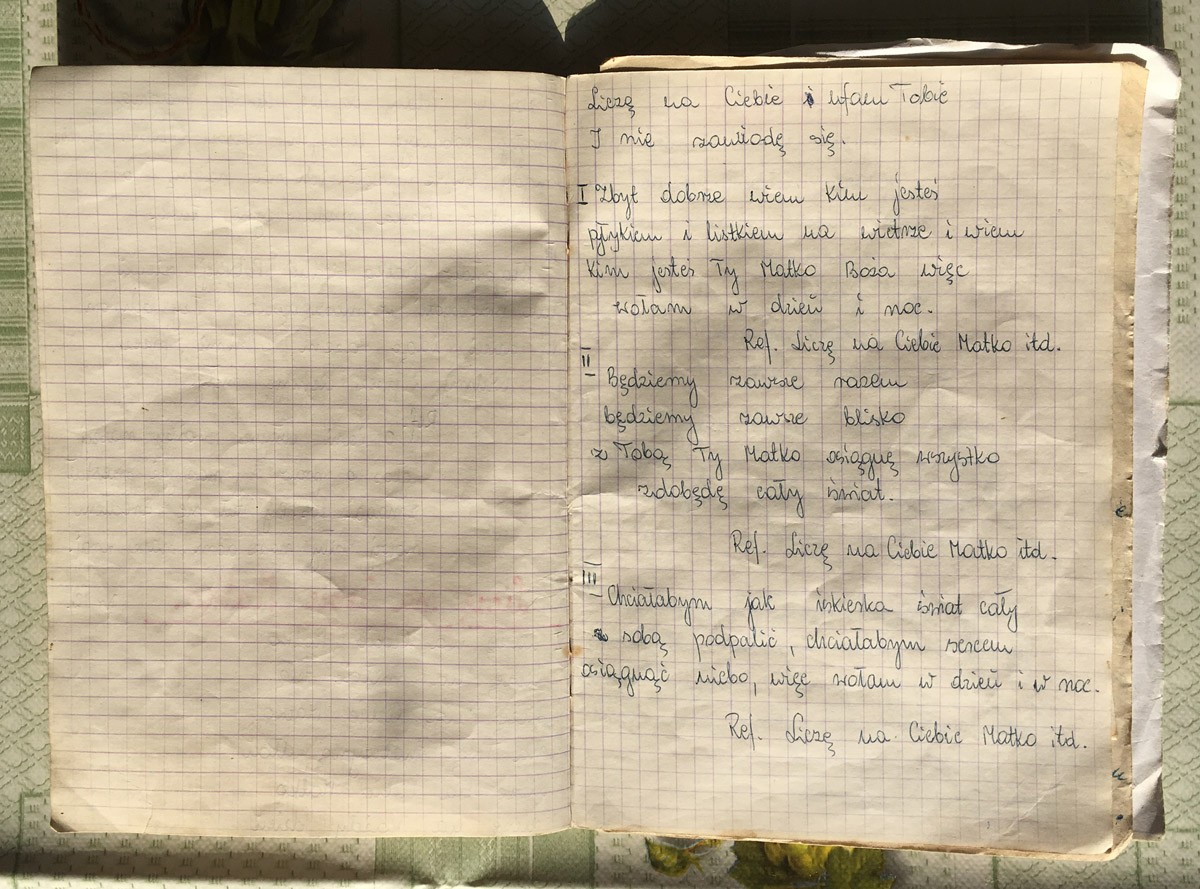 Liczę na Ciebie i ufam Tobie
I nie zawiodę się.
I Zbyt dobrze wiem kim jesteś
pyłkiem i listkiem na wietrze i wiem
kim jesteś Ty Matko Boża więc
wołam w dzień i noc.
Ref. Liczę na Ciebie Matko itd.
II
Będziemy zawsze razem
będziemy zawsze blisko
z Tobą Ty Matko osiągnę wszystko
zdobędę cały świat.
Ref. Liczę na Ciebie Matko itd.
III
Chciałabym jak iskierka świat cały
sobą podpalić, chciałabym sercem
osiągnąć niebo, więc wołam w dzień i w noc.
Ref. Liczę na Ciebie Matko itd.